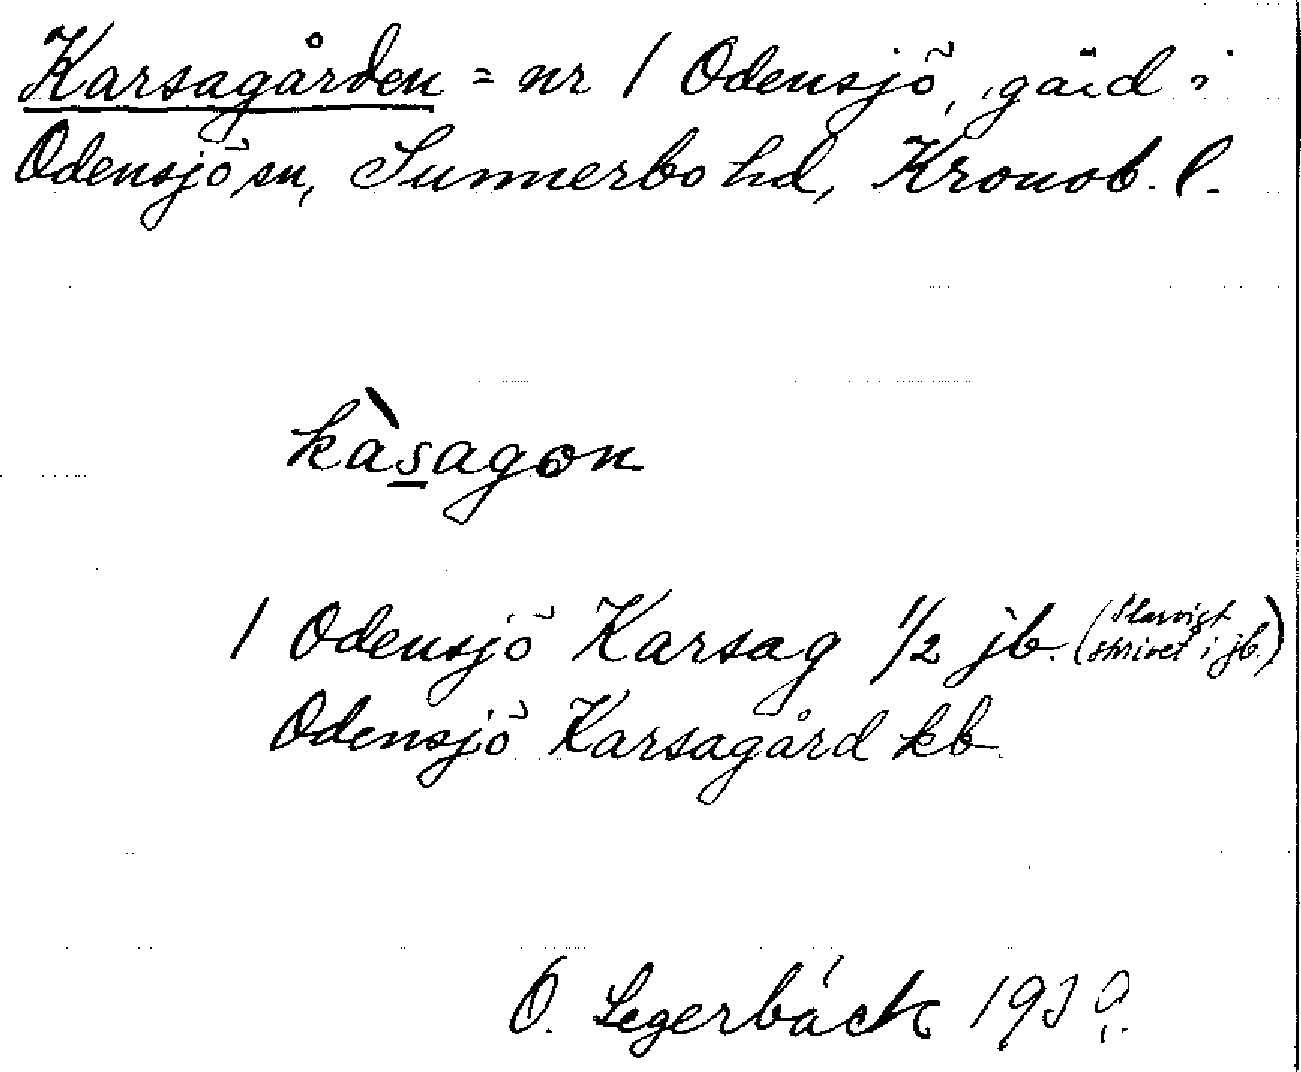 Karsagården = nr 1 Odensjö, gård i
Odensjö sn, Sunnerbo hd, Kronob. l.
kàsagon
1 Odensjö Karsag 1/2 jb. (Slarvigt
skrivet i jb.)
Odensjö Karsagård kb
O. Legerbäck